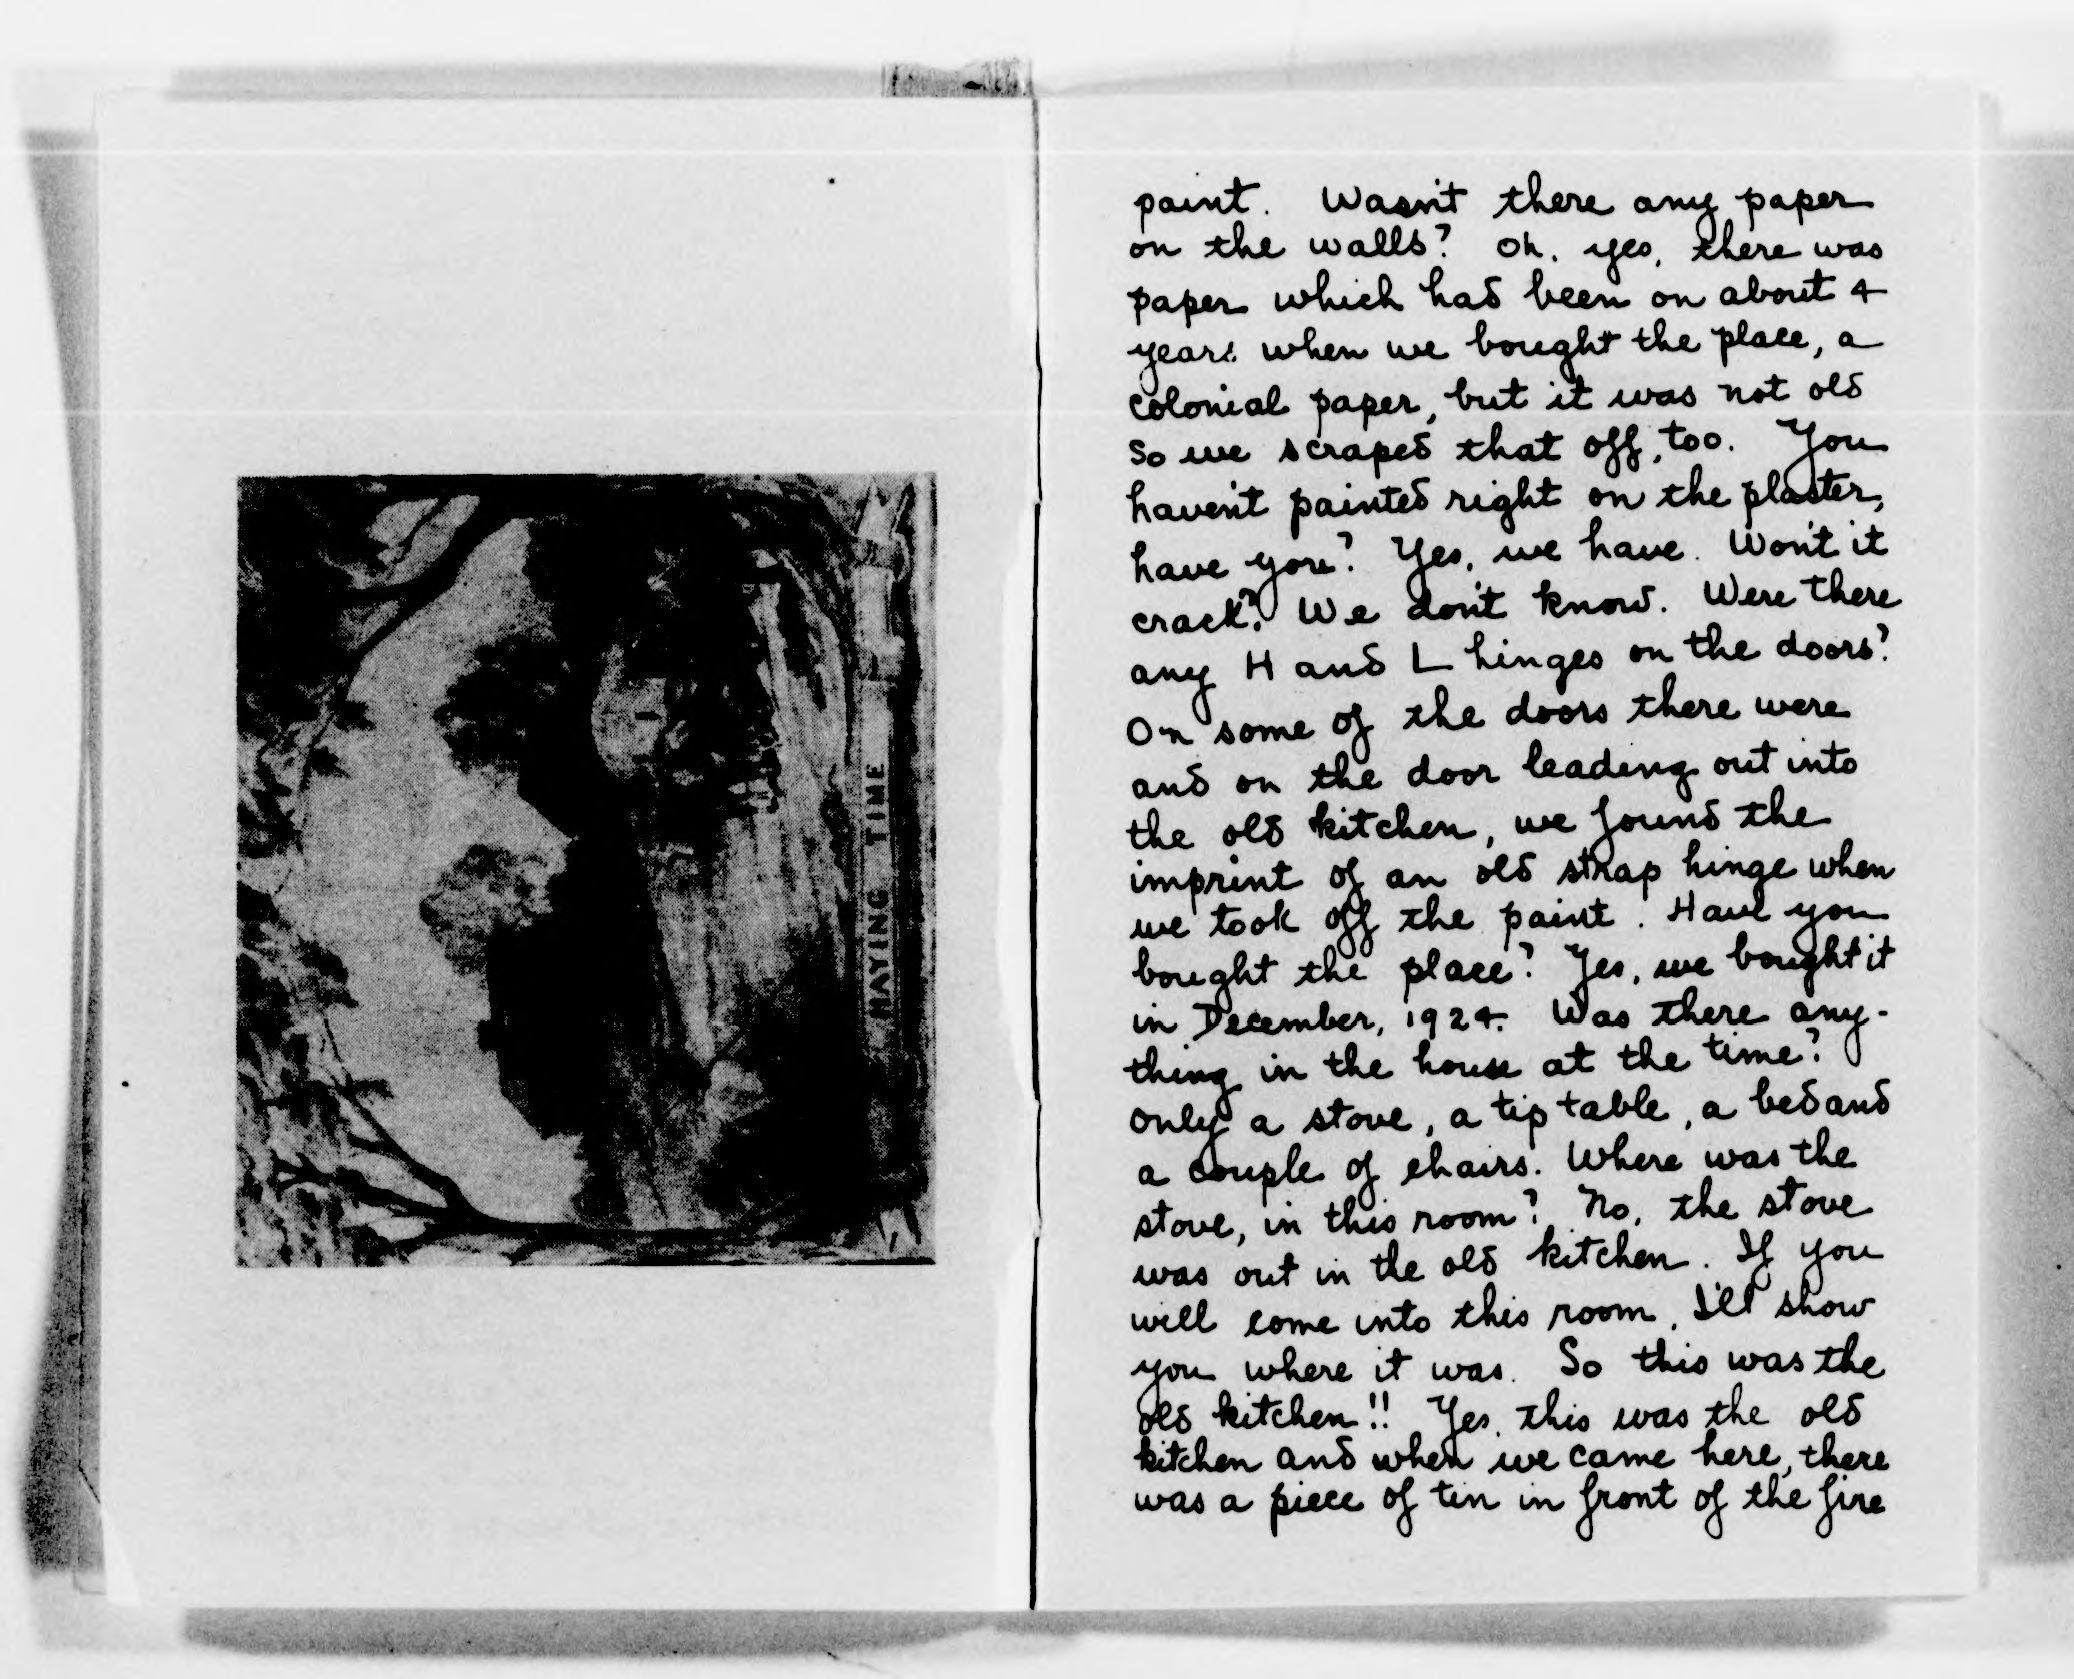 HAYING TIME
paint. Wasn't there any paper
on the walls? Oh, yes, there was
paper which had been on about 4
years when we bought the place, a
colonial paper, but it was not old
so we scraped that off, too. You
haven't painted right on the plaster,
have you? Yes, we have. Won't it
crack? We don't know. Were there
any H and L hinges on the doors?
On some of the doors there were
and on the door leading out into
the old kitchen, we found the
imprint of an old strap hinge when
we took off the paint. Have you
bought the place? Yes, we bought it
in December, 1924. Was there any-
thing in the house at the time?
Only a stove, a tip table, a bed and
a couple of chairs. Where was the
stove, in this room? No, the stove
was out in the old kitchen. If you
will come into this room, I'll show
you where it was. So this was the
old kitchen!! Yes, this was the old
kitchen and when we came here, there
was a piece of tin in front of the fire